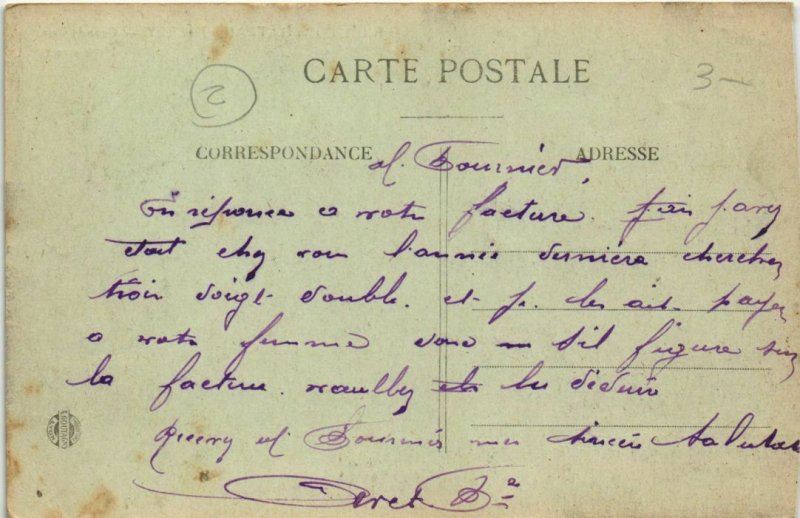 2
CARTE POSTALE
3-
CORRESPONDANCE
ADRESSE
M. Fournier,
En réponce a votre facture.
etait chez vous l'année derniere cherchez
trois doigt double. et je les ait payez
a votre femme donc sil figure sur
la facture. veuillez les déduire
Recevez M. Fournier mes sincère salutat